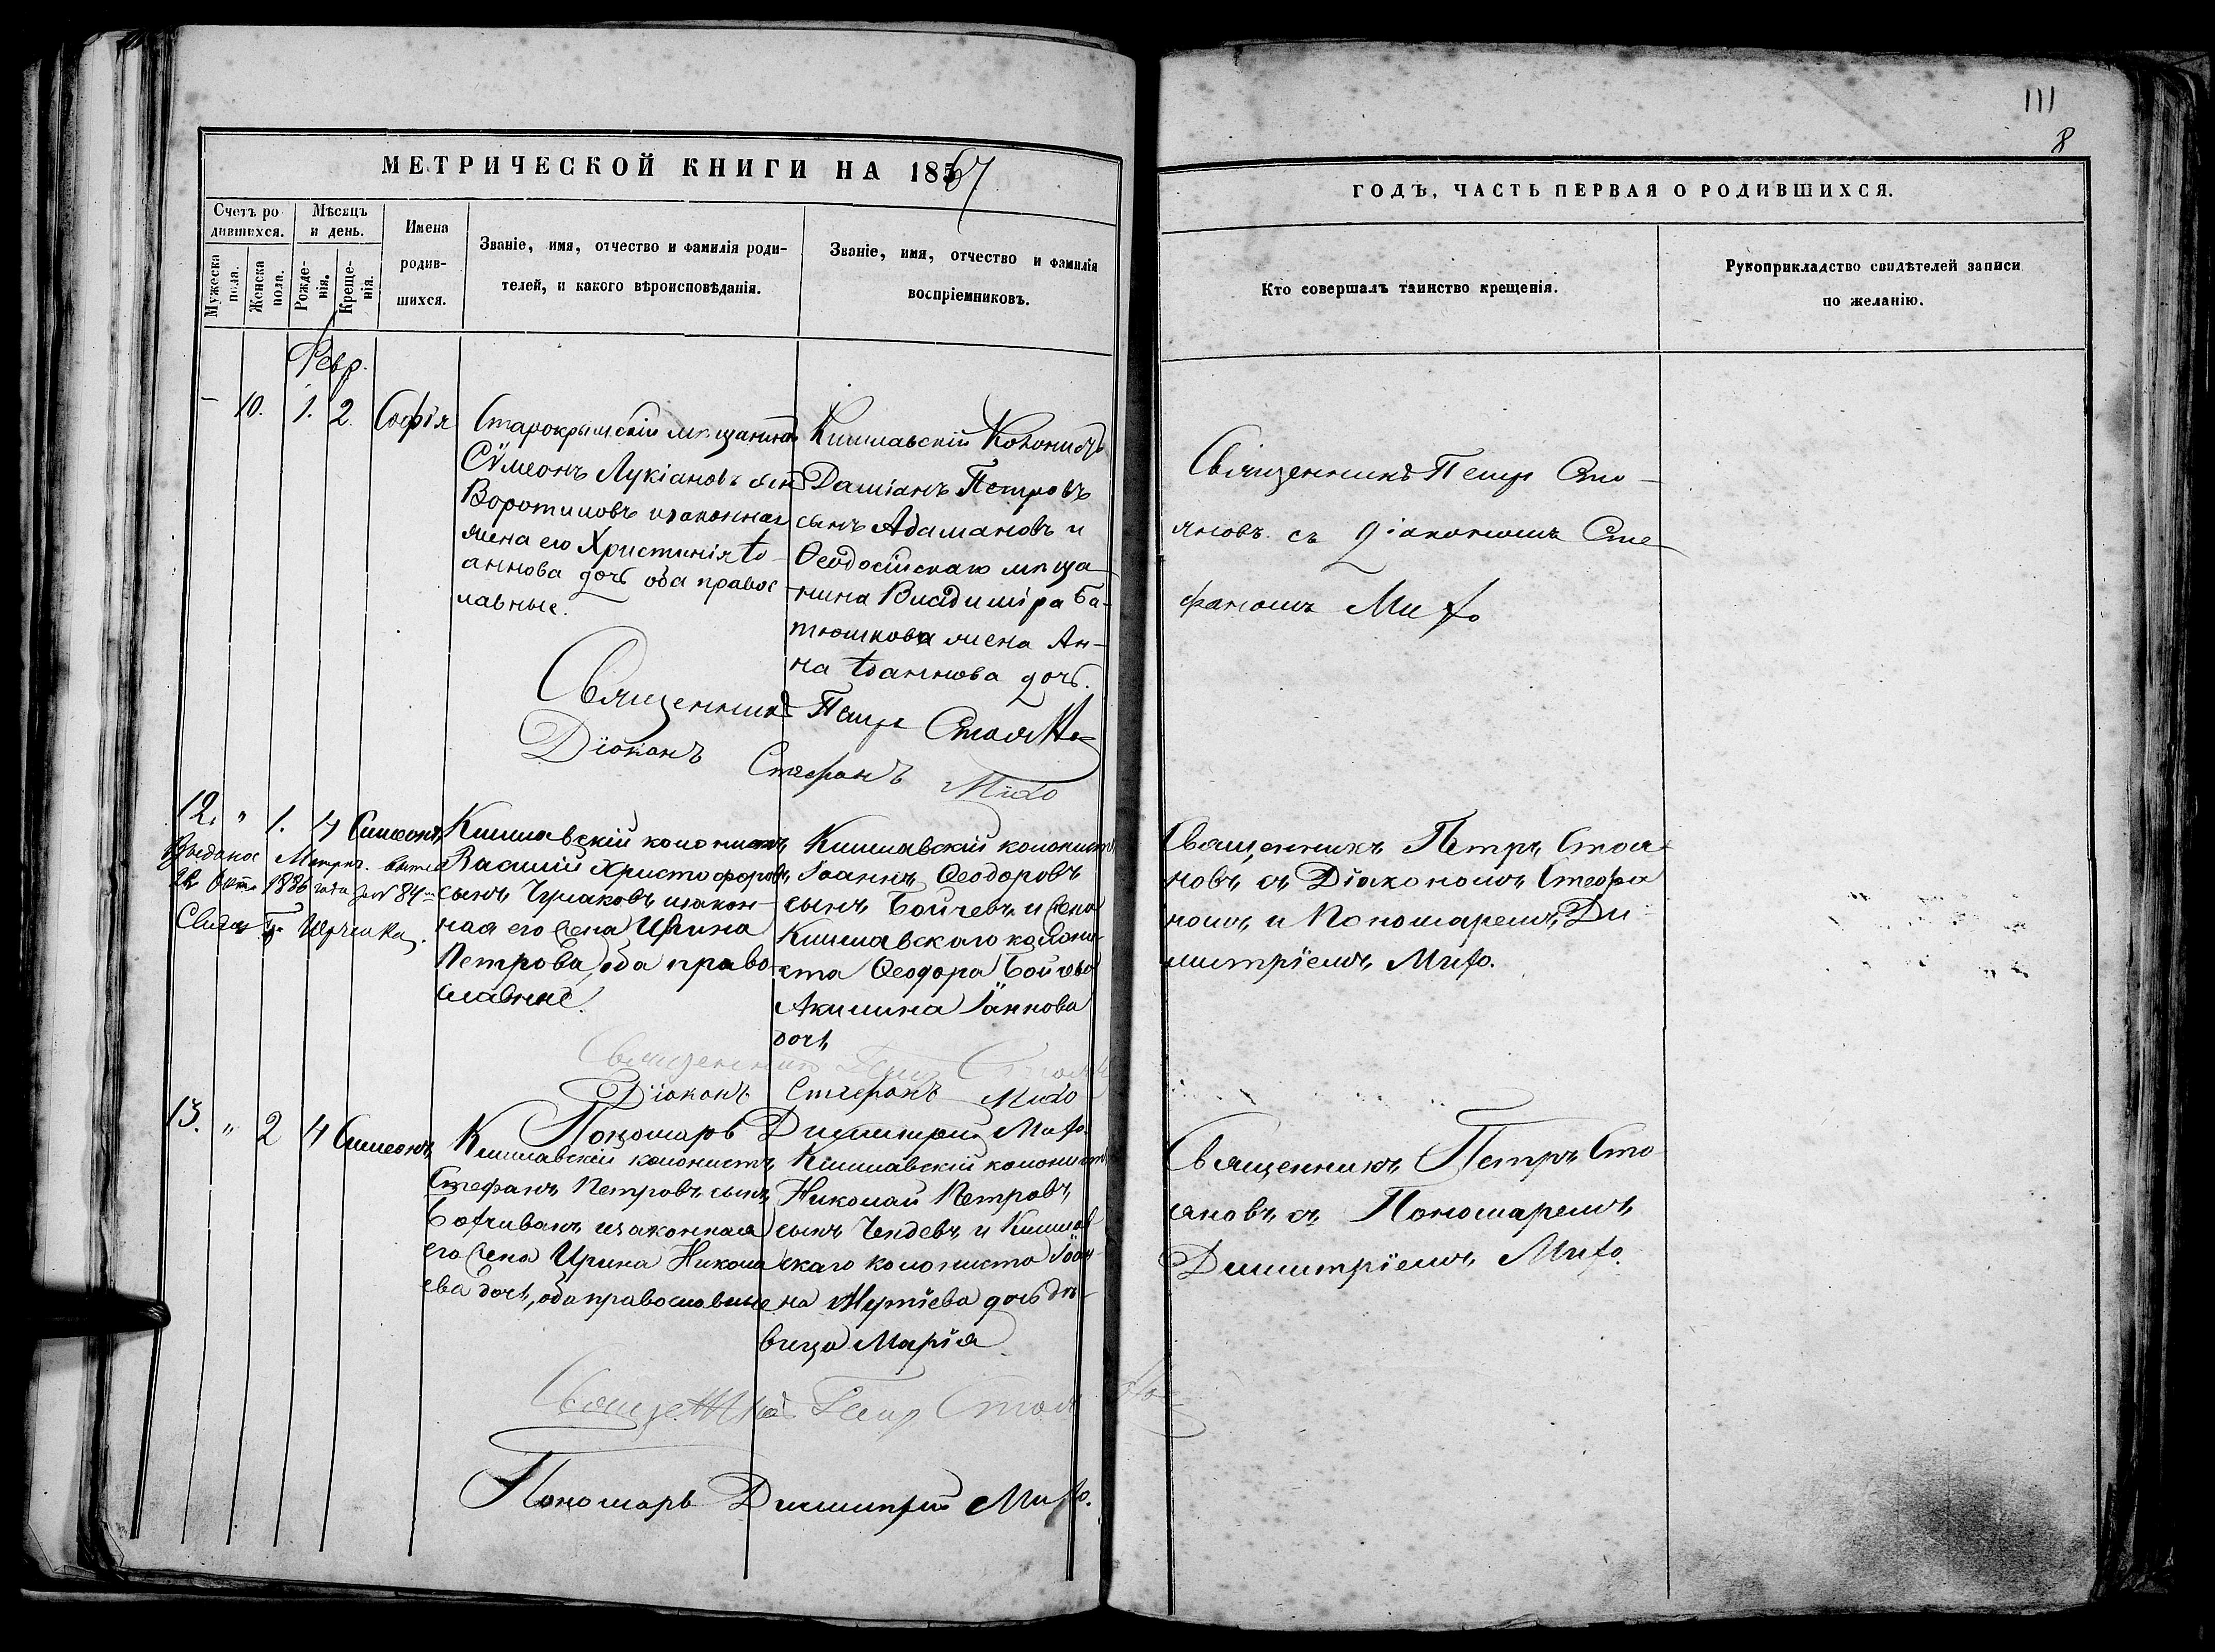 111
8
МЕТРИЧЕСКОЙ КНИГИ НА 1867
ГОДЪ, ЧАСТЬ ПЕРВАЯ О РОДИВШИХСЯ.
Счетъ ро-
дившихся.
Мѣсяцъ
и день.
Мужеска
пола.
Женска
пола.
Рожде-
нія.
Креще-
нія.
Имена
родив-
шихся.
Званіе, имя, отчество и фамилія роди-
телей, и какого вѣроисповѣданія.
Званіе, имя, отчество и фамилія
воспріемниковъ.
Кто совершалъ таинство крещенія.
Рукоприкладство свидѣтелей записи
по желанію.
Февр.
– 10. 1. 2. Софія
Старокрымскій мѣщанинъ
Сѷмеонъ Лукіановъ сынъ
Воротиловъ и законная
жена его Христинія Іо-
аннова дочь оба правос
лавные.
Кишлавскій Колонистъ
Даміанъ Петровъ
сынъ Адамановъ и
Ѳеодосійскаго мѣща
нина Владиміра Ба-
тюшкова жена Ан-
на Іоаннова дочь.
Священникъ Петръ Сто-
яновъ съ Діакономъ Сте-
фаномъ Мифо
Священникъ Петръ Стояно
Діаконъ Стефанъ Мидо
12. " 1. 4 Симеонъ
Выдано Метрич.
22 Окт. 1886 года за № 84
Свящ.
Кишлавскій колонистъ
Василій Христофоровъ
сынъ Чумаковъ и закон-
ная его жена Ирина
Петрова, оба право-
славные.
Кишлавскій колонистъ
Іоаннъ Ѳеодоровъ
сынъ Бойчевъ и жена
Кишлавскаго колони-
ста Ѳеодора Бойчева
Акилина Іаннова
дочь
Священникъ Петръ Стоя
новъ съ Діакономъ Стефа
номъ и Пономаремъ Ди-
митріемъ Мифо.
Священникъ Петръ Стоян
Діаконъ Стефанъ Мидо
Пономарь Димитрій Мифо.
13. " 2 4 Симеонъ
Кишлавскій колонистъ
Стефанъ Петровъ сынъ
и законная
его жена Ирина Никола
ева дочь, оба православные
Кишлавскій колонистъ
Николай Петровъ
сынъ Чендевъ и Кишлав
скаго колониста Іоан-
на дочь дѣ-
вица Марія
Священникъ Петръ Сто
яновъ съ Пономаремъ
Димитріемъ Мифо.
Священникъ Петръ Стоянов
Пономарь Димитрій Мифо.